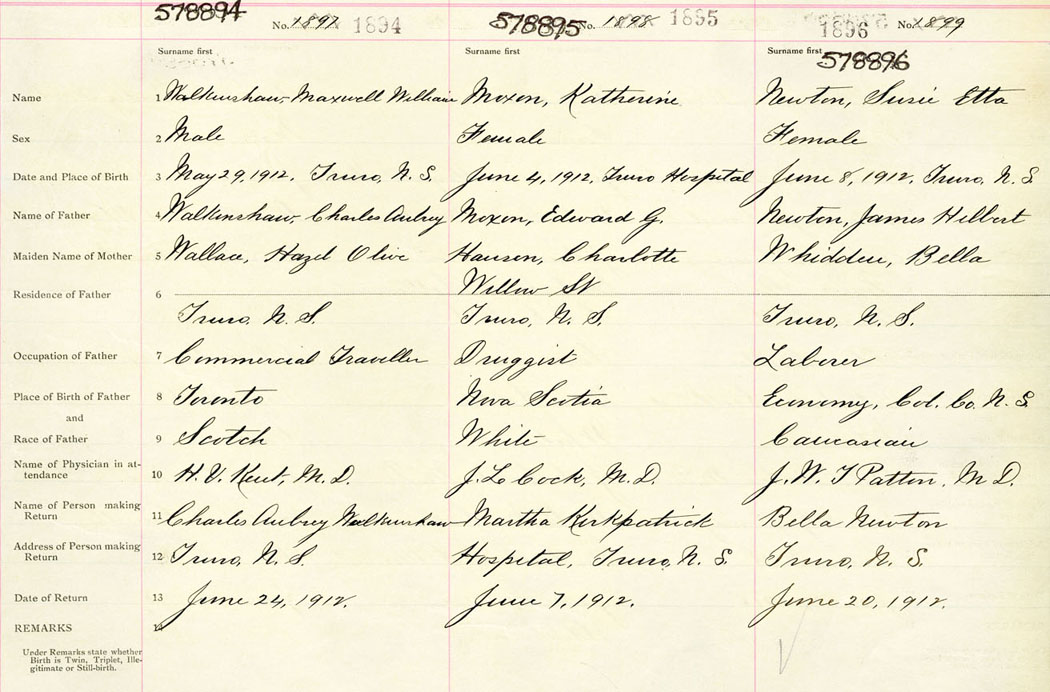 578894 578895 1895
No. 1897 1894 No. 1898 1896 No. 1899
Surname first Surname first Surname first 578896
Name 1 Walkinshaw, Maxwell William Moxon, Katherine Newton, Susie Etta
Sex 2 Male Female Female
Date and Place of Birth 3 May 29, 1912. Truro, N. S. June 4, 1912, Truro Hospital June 8, 1912, Truro, N. S.
Name of Father 4 Walkinshaw, Charles Aubrey Moxon, Edward G. Newton, James Hilbert
Maiden Name of Mother 5 Wallace, Hazel Olive Hanson, Charlotte Whidden, Bella
Willow St
Residence of Father 6
Truro, N. S. Truro, N. S. Truro, N. S.
Occupation of Father 7 Commercial Traveller Druggist Laborer
Place of Birth of Father 8 Toronto Nova Scotia Economy, Col. Co. N. S.
and
Race of Father 9 Scotch White Caucasian
Name of Physician in at-
tendance 10 H. V. Kent, M. D. J. L. Cock, M. D. J. W. T Patton, M D.
Name of Person making
Return 11 Charles Aubrey Walkinshaw Martha Kirkpatrick Bella Newton
Address of Person making
Return 12 Truro, N. S. Hospital, Truro, N. S. Truro, N. S.
Date of Return 13 June 24, 1912. June 7, 1912. June 20, 1912.
REMARKS 14
Under Remarks state whether
Birth is Twin, Triplet, Ille-
gitimate or Still-birth.